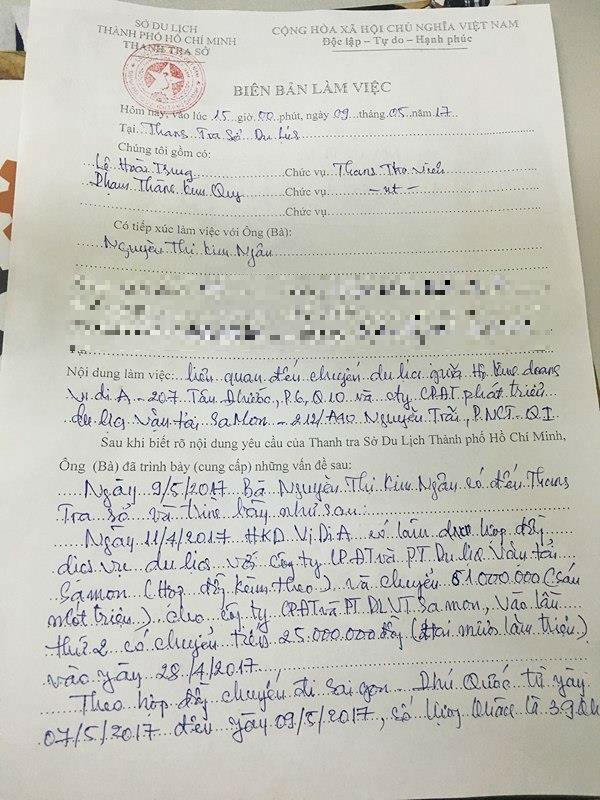 SỞ DU LỊCH
THÀNH PHỐ HỒ CHÍ MINH
THANH TRA SỞ
CỘNG HÒA XÃ HỘI CHỦ NGHĨA VIỆT NAM
Độc lập – Tự do – Hạnh phúc
BIÊN BẢN LÀM VIỆC
Hôm nay, vào lúc 15 giờ 00 phút, ngày 09 tháng 05 năm 17
Tại Thanh Tra Sở Du Lịch
Chúng tôi gồm có:
Lê Hoài Trung Chức vụ Thanh Tra Viên
Phạm Thăng Kim Quy Chức vụ -nt-
Chức vụ
Có tiếp xúc làm việc với Ông (Bà):
Nguyễn Thị Kim Ngân
Nội dung làm việc: liên quan đến chuyến du lịch giữa Hộ kinh doanh
Vi di A - 207 Tân Phước, P.6, Q.10 và cty CPĐT phát triển
du lịch Vận tải Sa Mon - 212/A40 Nguyễn Trãi, P.NCT - Q.I.
Sau khi biết rõ nội dung yêu cầu của Thanh tra Sở Du Lịch Thành phố Hồ Chí Minh,
Ông (Bà) đã trình bày (cung cấp) những vấn đề sau:
Ngày 9/5/2017 Bà Nguyễn Thị Kim Ngân có đến Thanh
Tra sở và trình bày như sau:
Ngày 11/4/2017 HKD Vi Di A có làm hợp đồng
dịch vụ du lịch với Công ty CP ĐT và PT Du lịch Vận tải
Samon (Hợp đồng kèm theo) và chuyển 61.000.000 (sáu
mốt triệu) cho Công ty CPĐT và PT DLVT Samon, Vào lần
thứ 2 có chuyển tiếp 25.000.000 đồng (hai mươi lăm triệu)
vào ngày 28/4/2017.
Theo hợp đồng chuyến đi Sai gon - Phú Quốc từ ngày
07/5/2017 đến ngày 09/5/2017, số lượng khách là 39